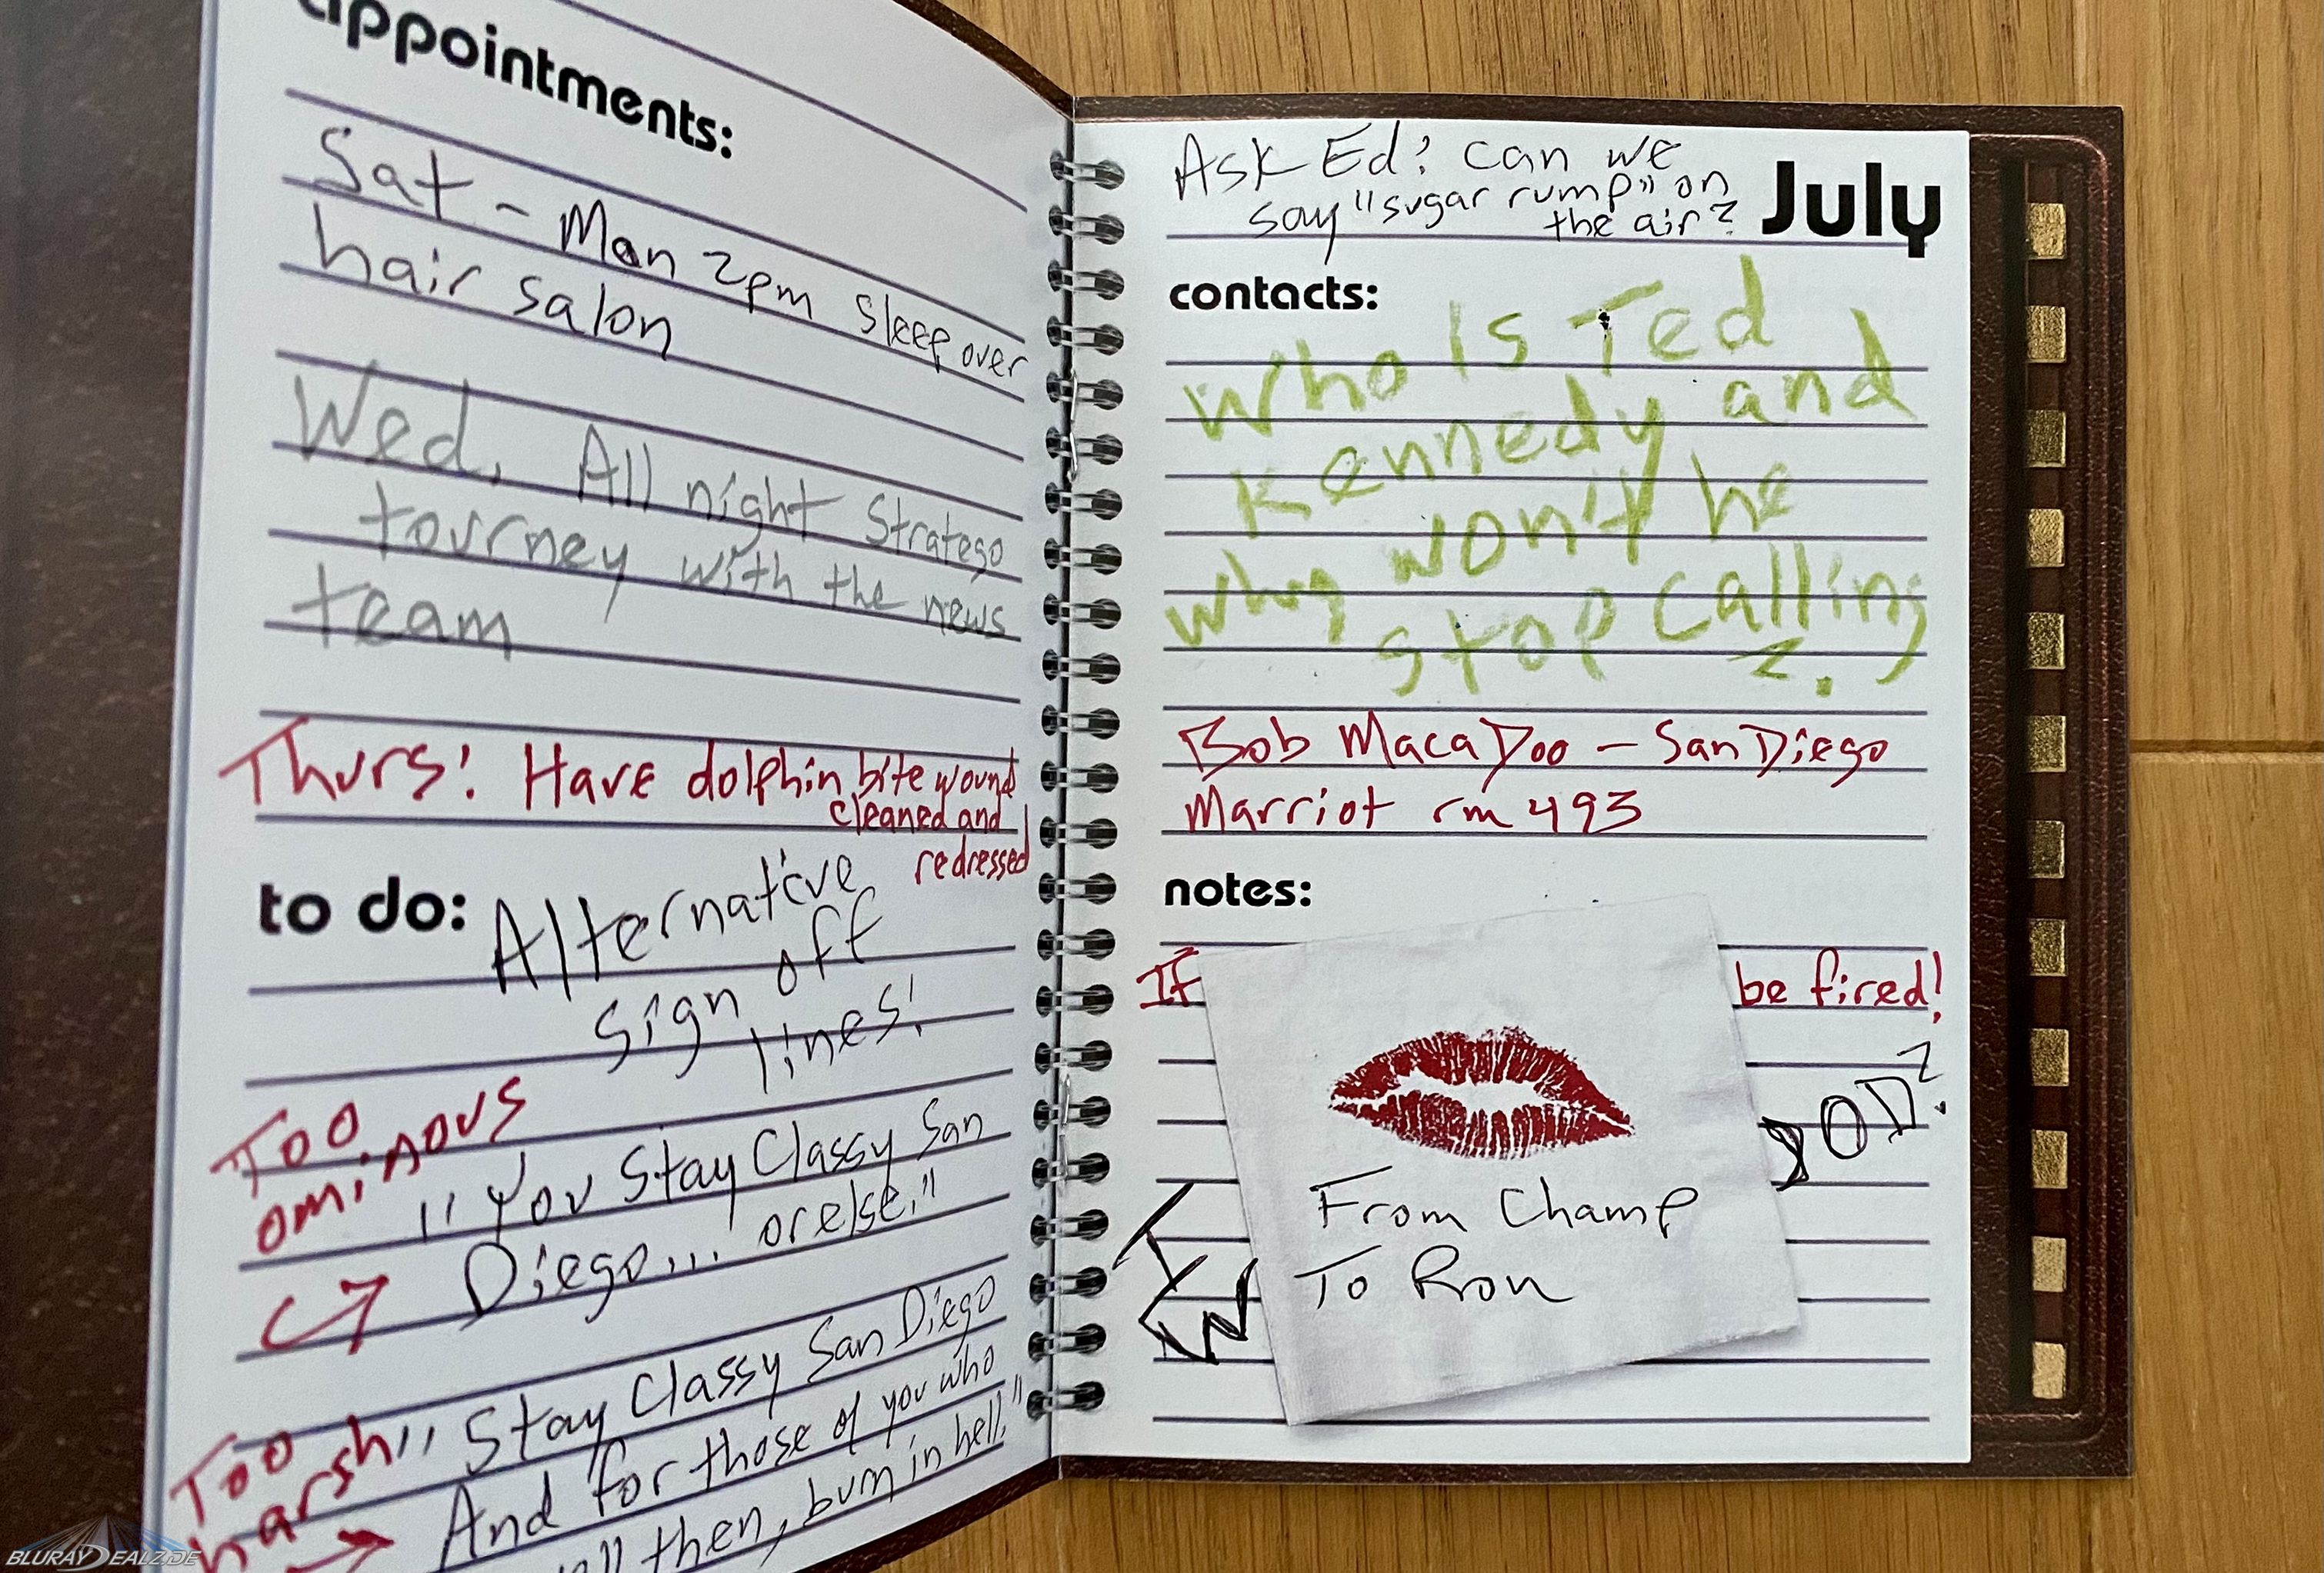 appointments:
Sat - Mon 2pm Sleep over
hair salon
Wed. All night Stratego
tourney with the news
team
Thurs! Have dolphin bite wound
cleaned and
redressed
to do: Alternative
sign off
lines!
Too
ominous
"You Stay Classy San
Diego... or else."
Too
harsh
"Stay Classy San Diego
And for those of you who
then, burn in hell."
Ask Ed: can we
say "sugar rump" on
the air?
July
contacts:
Who Is Ted
Kennedy and
why won't he
stop calling
?
Bob MacaDoo - San Diego
Marriot rm 493
notes:
If
be fired!
From Champ
To Ron
BLURAYDEALZ.DE